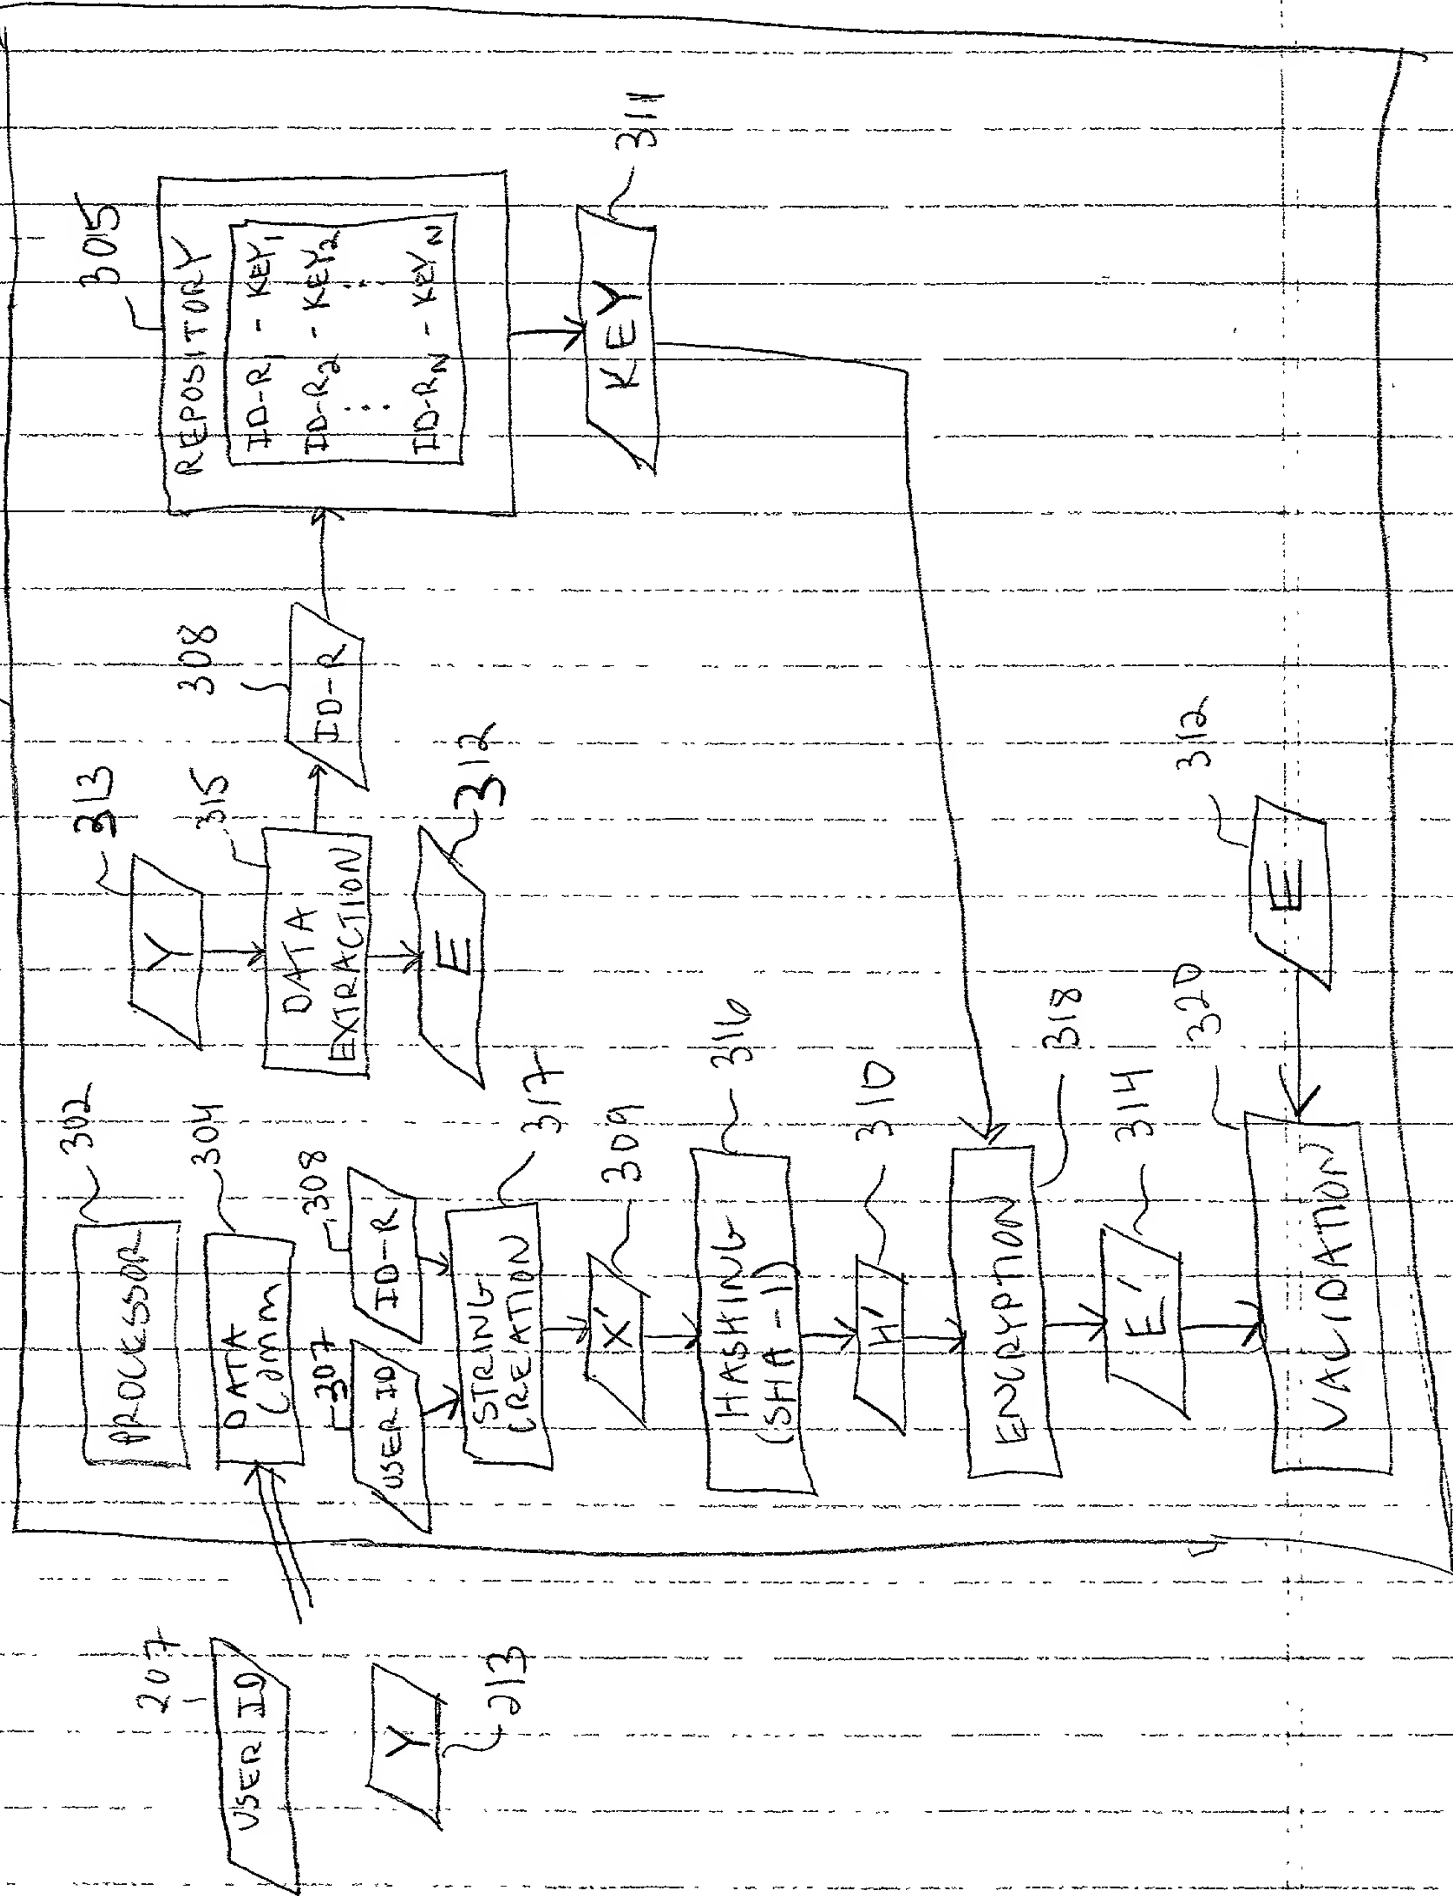 207
USER ID
Y
213
302
PROCESSOR
304
DATA
COMM
307
USER ID
308
ID-R
STRING
CREATION
317
X'
309
HASHING
(SHA-1)
316
H'
310
ENCRYPTION
318
E'
314
320
VALIDATION
312
E
313
Y
315
DATA
EXTRACTION
E
312
308
ID-R
305
REPOSITORY
ID-R1 - KEY1
ID-R2 - KEY2
⋮ ⋮
ID-RN - KEYN
KEY
311